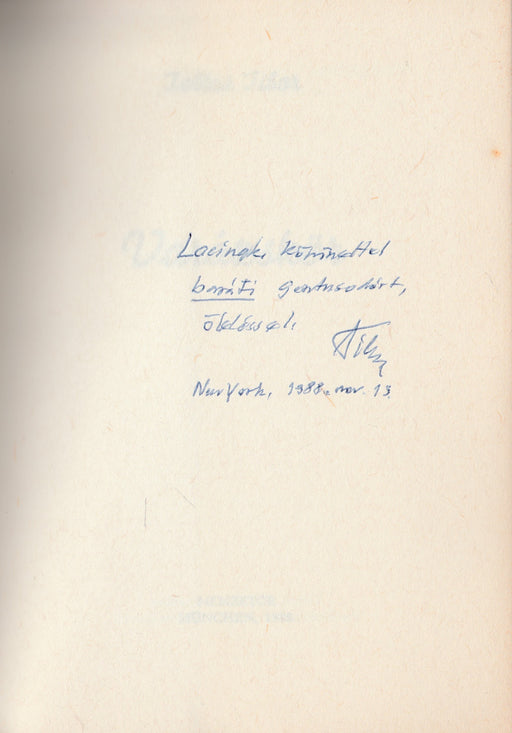 Lacinak, köszönettel
baráti gesztusodért,
öleléssel,
Tibor
New York, 1988. nov. 13.
MÜNCHEN 1988